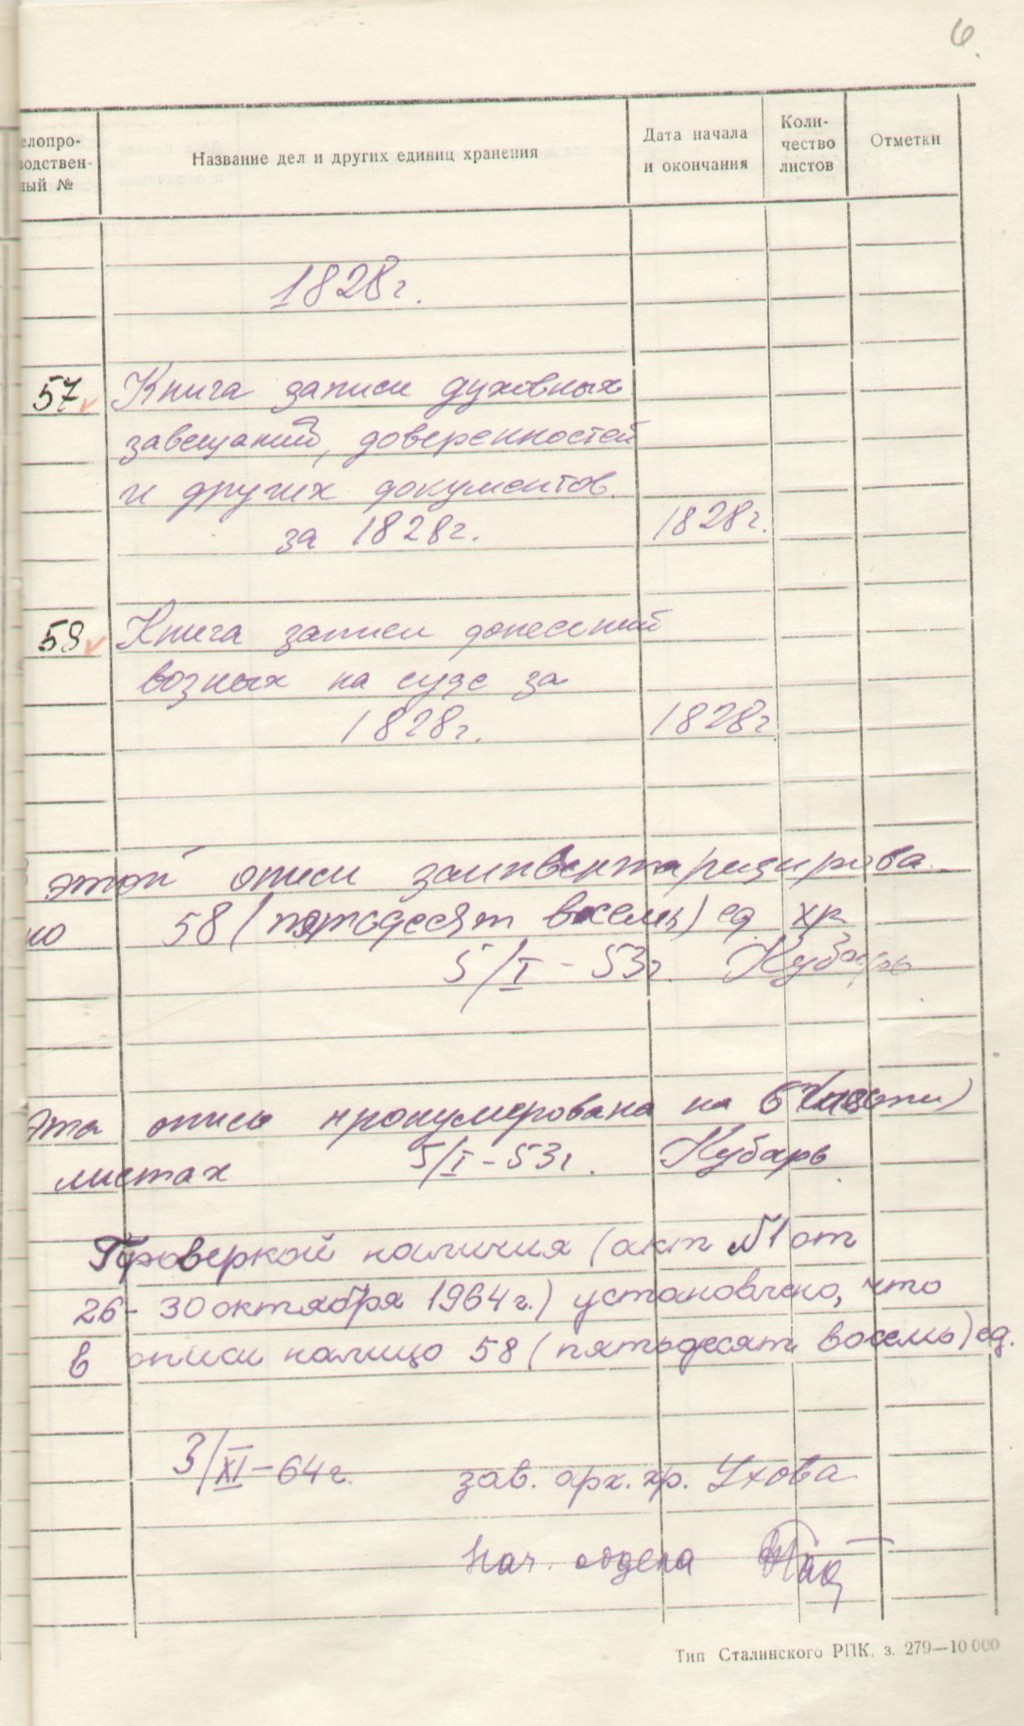 6
елопро-
водствен-
ный №
Название дел и других единиц хранения
Дата начала
и окончания
Коли-
чество
листов
Отметки
1828г.
57 Книга записи духовных
завещаний, доверенностей
и других документов
за 1828г. 1828г.
58 Книга записи донесений
возных на суде за
1828г. 1828г
этой описи заинвентаризирова
но 58 (пятьдесят восемь) ед хр
5/I - 53г. Кубарь
Эта опись пронумерована на 6 (шести)
листах 5/I - 53г. Кубарь
Проверкой наличия (акт №1 от
26-30 октября 1964г.) установлено, что
в описи налицо 58 (пятьдесят восемь) ед.
3/XI-64г. зав. арх. хр. Ухова
Нач. отдела
Тип Сталинского РПК. з. 279—10 000